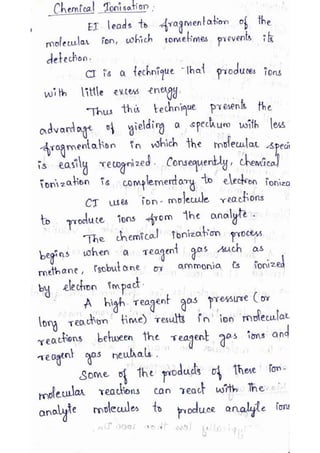 Chemical Ionisation :
EI leads to fragmentation of the
molecular ion, which sometimes prevents its
detection.
CI is a technique that produces ions
with little excess energy.
Thus this technique presents the
advantage of yielding a spectrum with less
fragmentation in which the molecular speci
is easily recognized. Consequently, chemical
ionization is complementary to electron ioniza
CI uses ion-molecule reactions
to produce ions from the analyte.
The chemical ionization process
begins when a reagent gas such as
methane, isobutane or ammonia is ionized
by electron impact.
A high reagent gas pressure (or
long reaction time) results in ion molecular
reactions between the reagent gas ions and
reagent gas neutrals.
Some of the products of these ion-
molecular reactions can react with the
analyte molecules to produce analyte ions